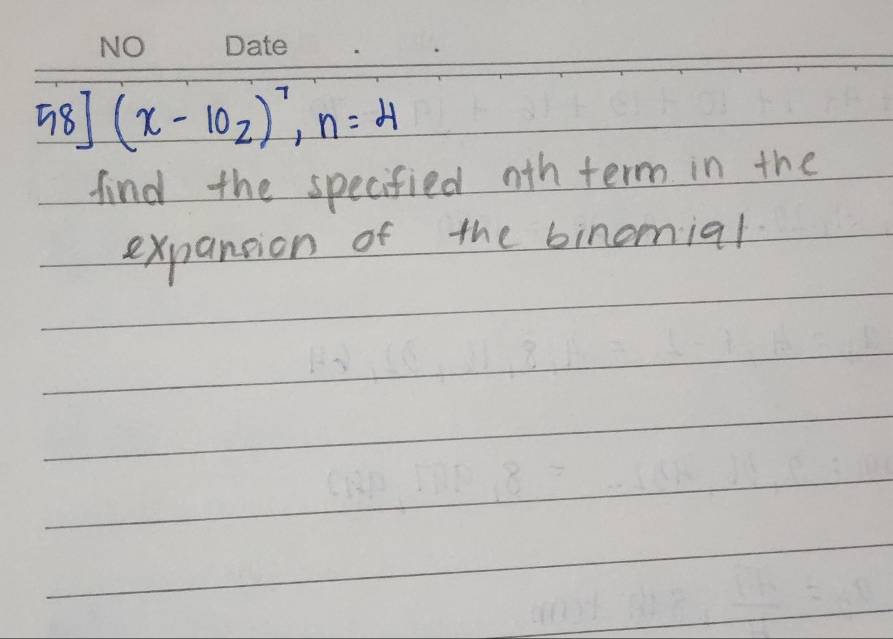 NO Date . .
58] (x - 10z)⁷, n = 4
find the specified nth term in the
expansion of the binomial